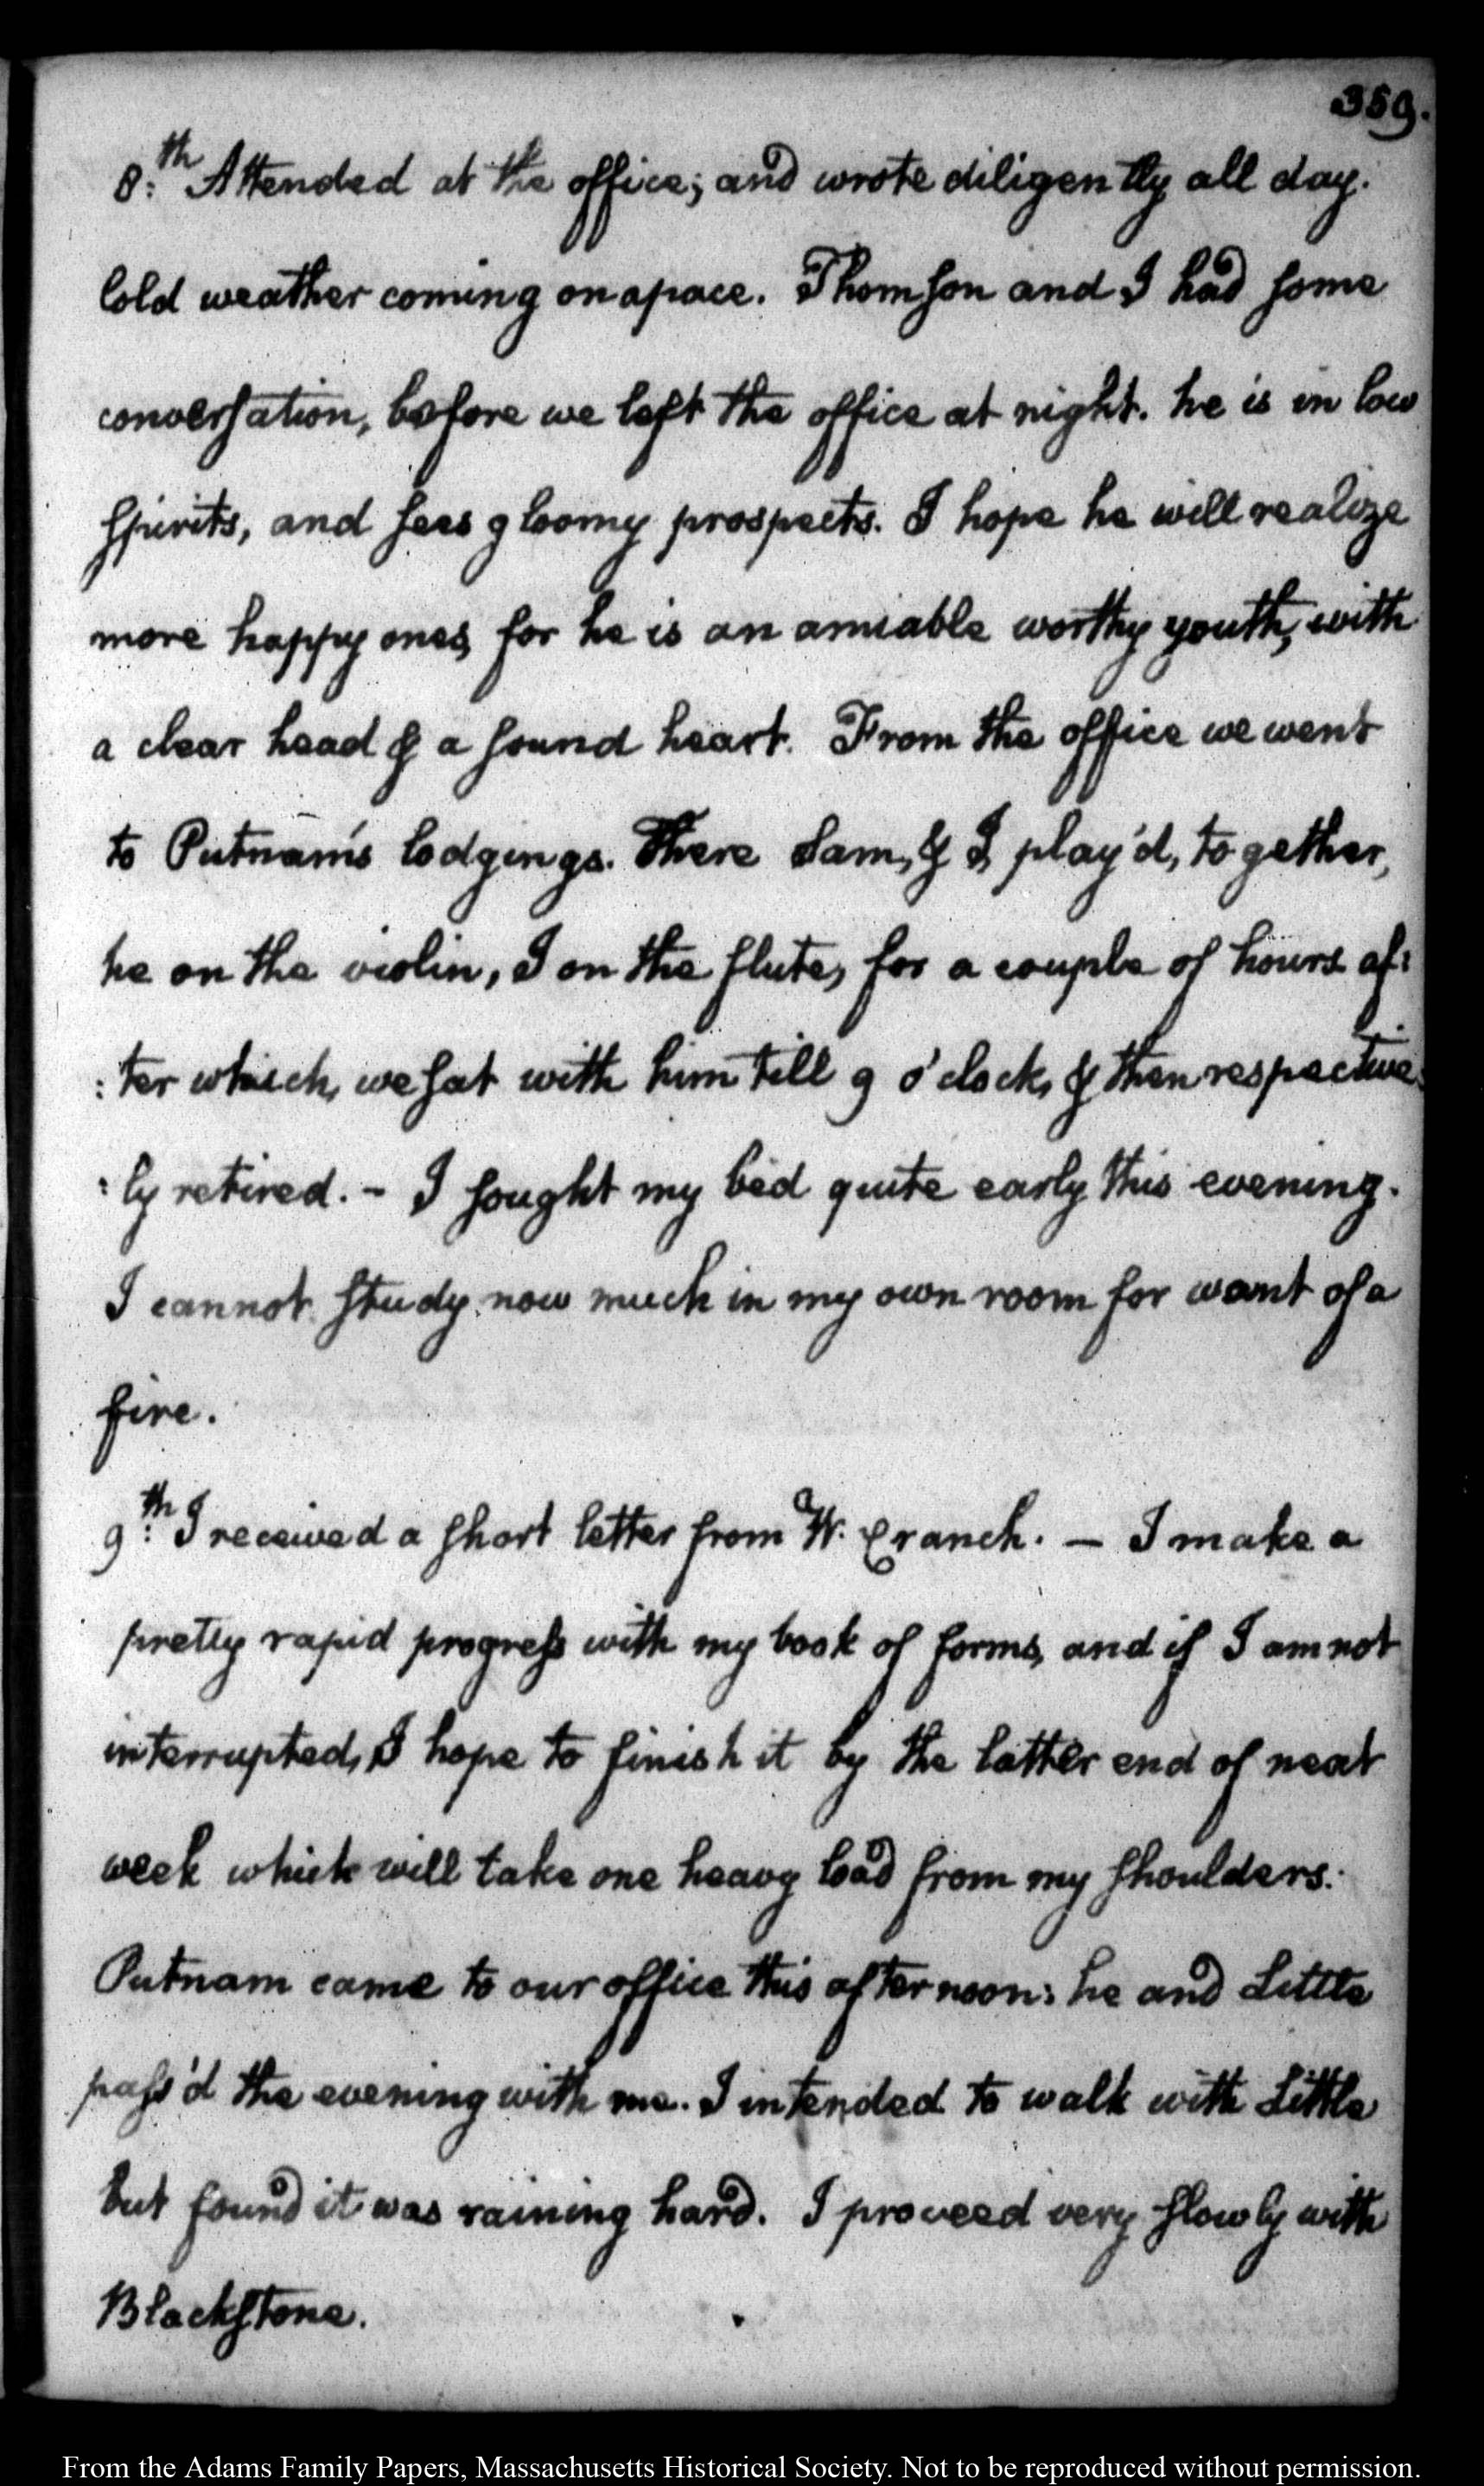 359.
8:th Attended at the office; and wrote diligently all day.
Cold weather coming on apace. Thomson and I had some
conversation, before we left the office at night. he is in low
spirits, and sees gloomy prospects. I hope he will realize
more happy ones, for he is an amiable worthy youth, with
a clear head & a sound heart. From the office we went
to Putnam's lodgings. There Sam, & I, play'd, together,
he on the violin, I on the flute, for a couple of hours af:
:ter which, we sat with him till 9 o'clock, & then respective:
:ly retired. - I sought my bed quite early this evening.
I cannot study now much in my own room for want of a
fire.
9:th I received a short letter from W. Cranch. — I make a
pretty rapid progress with my book of forms, and if I am not
interrupted, I hope to finish it by the latter end of next
week which will take one heavy load from my shoulders.
Putnam came to our office this afternoon: he and Little
pass'd the evening with me. I intended to walk with Little
but found it was raining hard. I proceed very slowly with
Blackstone.
From the Adams Family Papers, Massachusetts Historical Society. Not to be reproduced without permission.